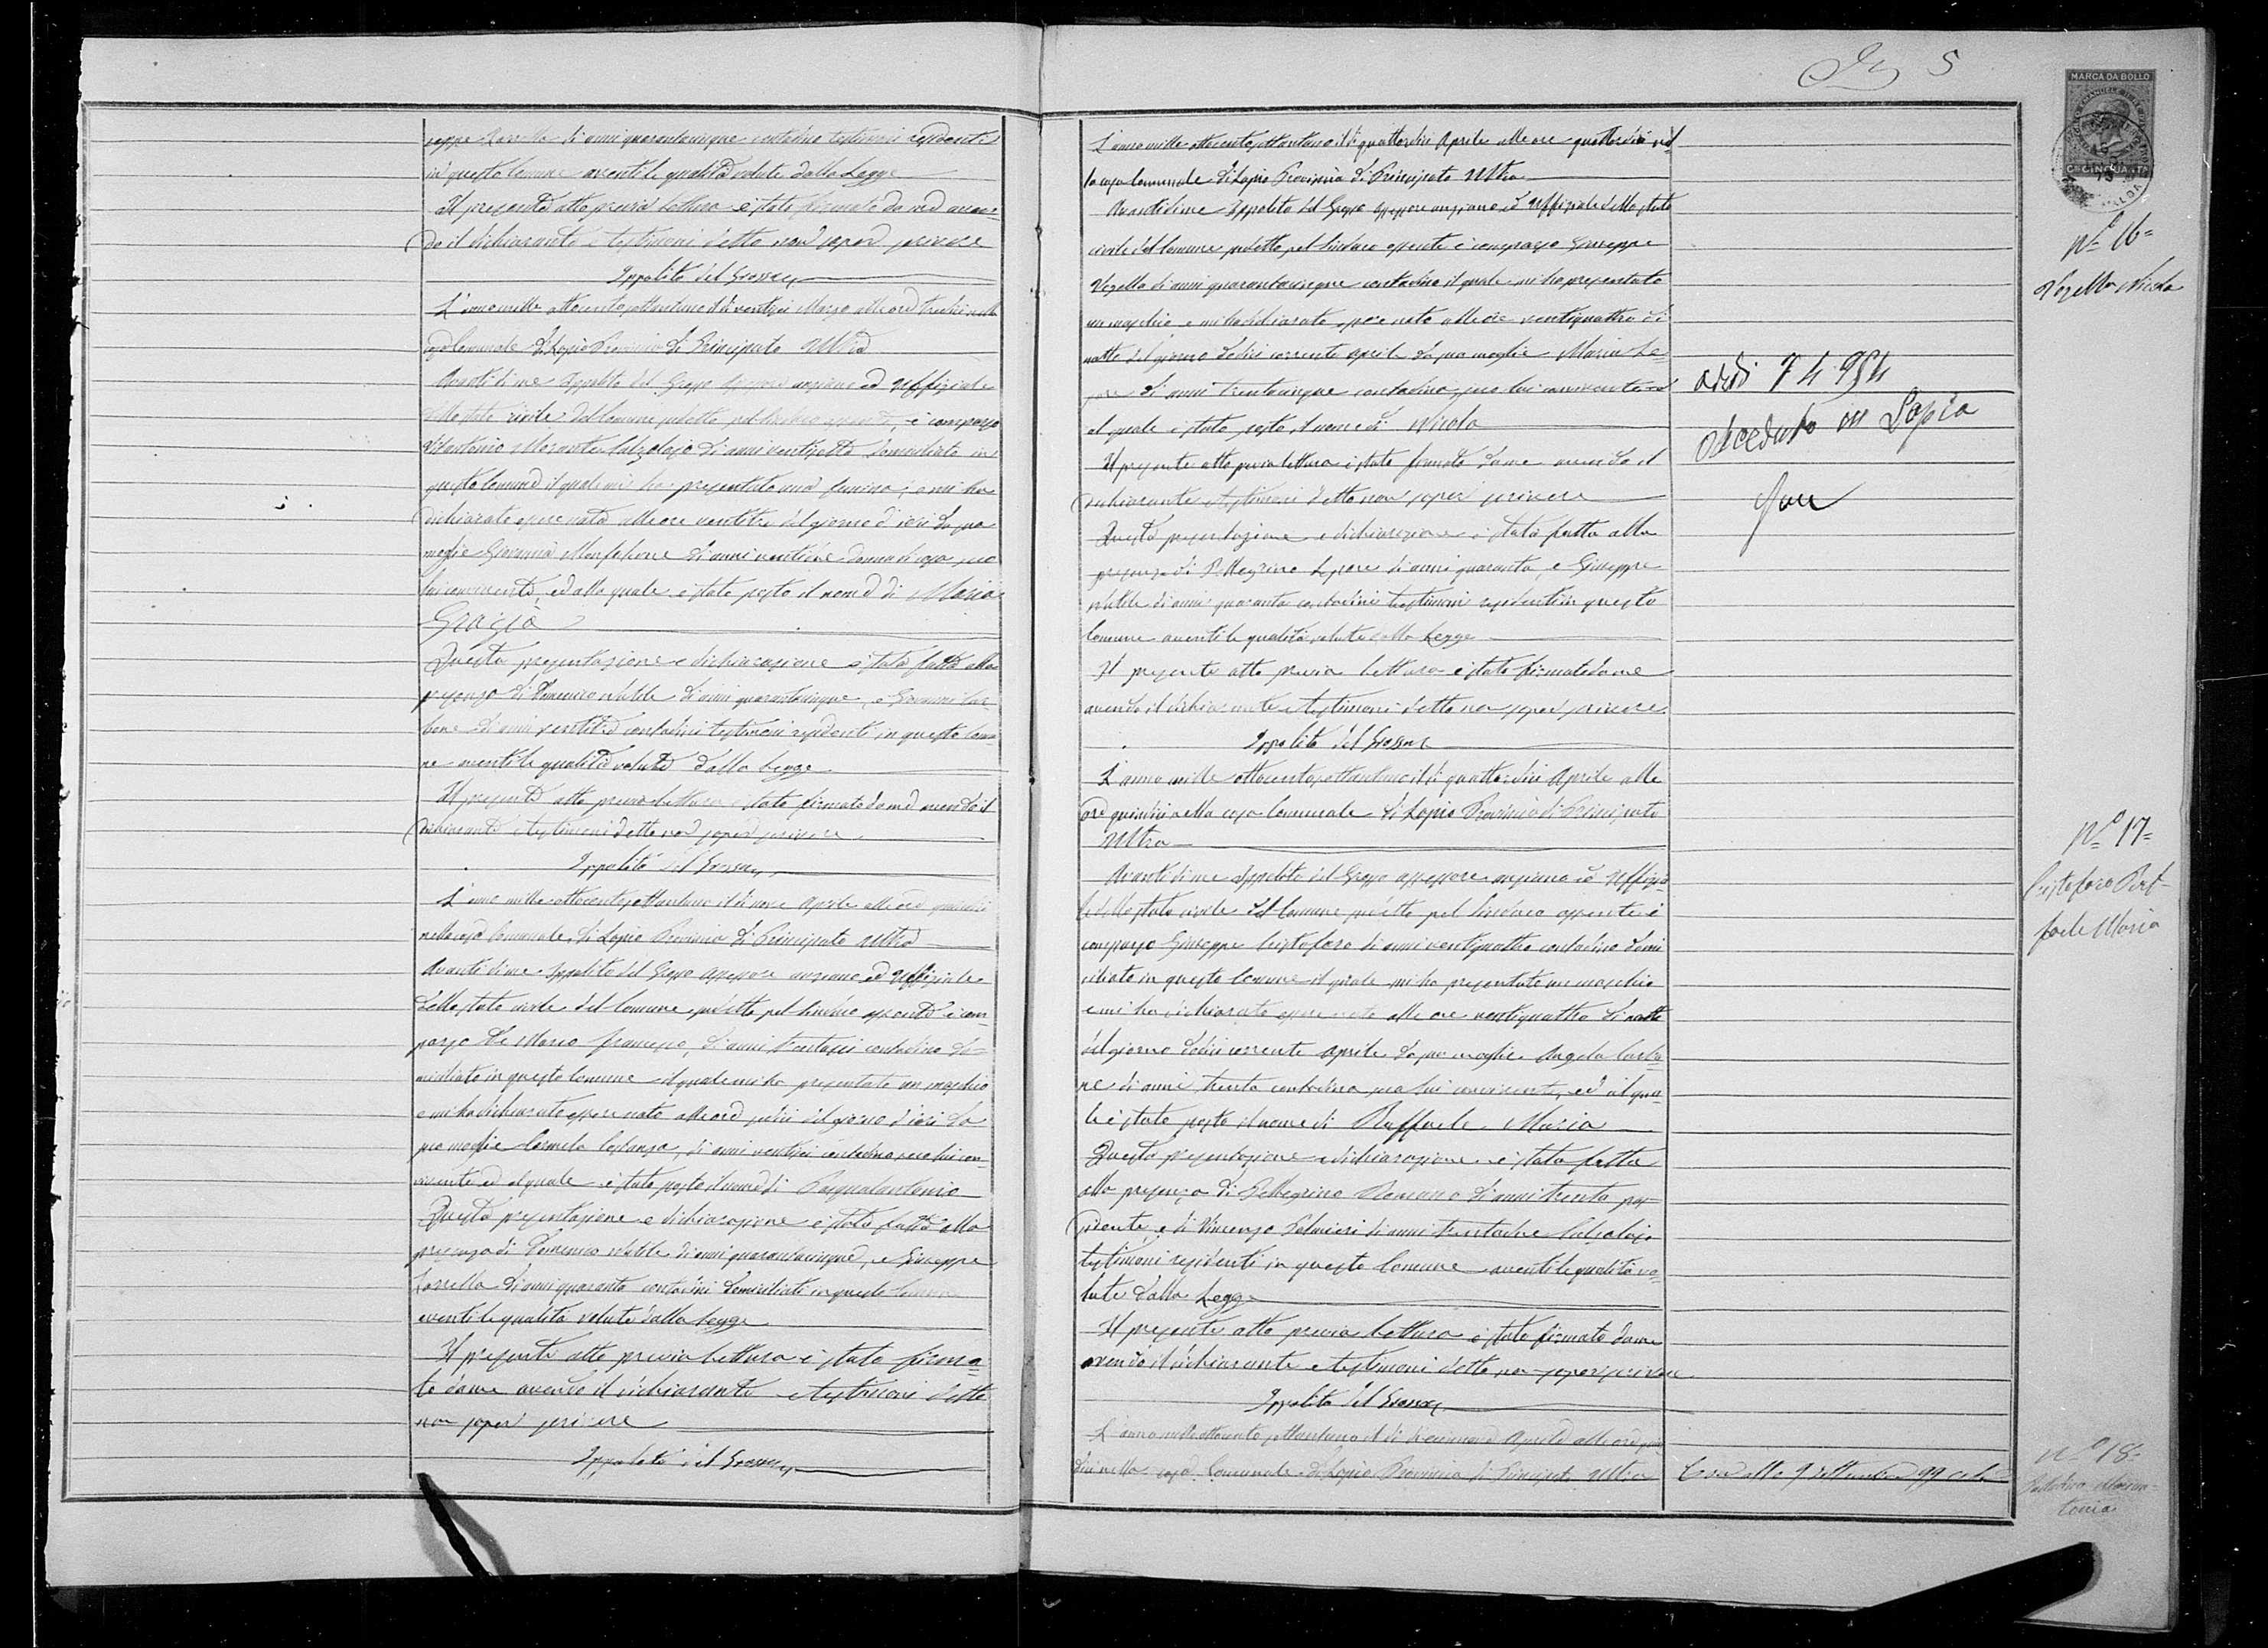 seppe Carrella di anni quarantacinque contadino testimoni residenti
in questo Comune aventi le qualità volute dalla Legge
Il presente atto previa lettura è stato firmato da me aven-
do il dichiarante e testimoni detto non saper scrivere
Ippolito del Grosso
L'anno mille ottocento settantuno il dì ventisei Marzo alle ore tredici nella
casa Comunale di Lapio Provincia di Principato Ultra
Avanti di me Ippolito del Grosso assessore anziano ed Uffiziale
dello stato civile del Comune suddetto pel Sindaco assente, è comparso
Vitantonio Morante Calzolajo di anni domiciliato in
questo Comune il quale mi ha presentato una femina, e mi ha
dichiarato essere nata alle ore ventitre del giorno d'ieri da sua
moglie Giovanna di anni ventinove donna di casa seco
lui convivente, ed alla quale è stato posto il nome di Maria
Grazia
Questa presentazione e dichiarazione è stata fatta alla
presenza di Domenico di anni quarantacinque, e Giovanni Car-
bone di anni contadini testimoni residenti in questo Comu-
ne aventi le qualità volute dalla Legge
Il presente atto previa lettura è stato firmato da me avendo il
dichiarante e testimoni detto non saper scrivere
Ippolito del Grosso
L'anno mille ottocento settantuno il dì nove Aprile alle ore quindici
nella casa Comunale di Lapio Provincia di Principato Ultra
Avanti di me Ippolito del Grosso assessore anziano ed Uffiziale
dello stato civile del Comune suddetto pel Sindaco assente è com-
parso De Marco Francesco, di anni trentasei contadino do-
miciliato in questo Comune il quale mi ha presentato un maschio
e mi ha dichiarato essere nato alle ore sedici del giorno d'ieri da
sua moglie Carmela Costanza, di anni ventisei contadina seco lui con-
vivente ed al quale è stato posto il nome di Pasqualantonio
Questa presentazione e dichiarazione è stata fatta alla
presenza di Domenico di anni quarantacinque, e Giuseppe
Carrella di anni quaranta contadini domiciliati in questo Comune
aventi le qualità volute dalla Legge
Il presente atto previa lettura è stato firma-
to da me avendo il dichiarante e testimoni detto
non saper scrivere
Ippolito del Grosso
5
MARCA DA BOLLO
CINQUANTA
L'anno mille ottocento settantuno il dì quattordici Aprile alle ore quattordici nel-
la casa Comunale di Lapio Provincia di Principato Ultra
Avanti di me Ippolito del Grosso assessore anziano ed Uffiziale dello stato
civile del Comune suddetto pel Sindaco assente è comparso Giuseppe
Vozella di anni quarantacinque contadino il quale mi ha presentato
un maschio, e mi ha dichiarato essere nato alle ore ventiquattro di
notte del giorno dodici corrente Aprile da sua moglie Maria Le-
pore di anni trentacinque contadina, seco lui convivente ed
al quale è stato posto il nome di Nicola
Il presente atto previa lettura è stato firmato da me avendo il
dichiarante e testimoni detto non saper scrivere
Questa presentazione e dichiarazione è stata fatta alla
presenza di Pellegrino Lepore di anni quaranta, e Giuseppe
di anni quaranta contadini testimoni residenti in questo
Comune aventi le qualità volute dalla Legge
Il presente atto previa lettura è stato firmato da me
avendo il dichiarante e testimoni detto non saper scrivere
Ippolito del Grosso
L'anno mille ottocento settantuno il dì quattordici Aprile alle
ore quindici nella casa Comunale di Lapio Provincia di Principato
Ultra
Avanti di me Ippolito del Grosso assessore anziano ed Uffizia-
le dello stato civile del Comune suddetto pel Sindaco assente è
comparso Giuseppe Cristofaro di anni ventiquattro contadino domi-
ciliato in questo Comune il quale mi ha presentato un maschio
e mi ha dichiarato essere nato alle ore ventiquattro di notte
del giorno dodici corrente Aprile da sua moglie Angela Carbo-
ne di anni trenta contadina seco lui convivente, ed al qua-
le è stato posto il nome di Raffaele Maria
Questa presentazione e dichiarazione è stata fatta
alla presenza di Pellegrino Romano di anni trenta pos-
sidente, e di Vincenzo Palmieri di anni Calzolajo
testimoni residenti in questo Comune aventi le qualità vo-
lute dalla Legge
Il presente atto previa lettura è stato firmato da me
avendo il dichiarante e testimoni detto non saper scrivere
Ippolito del Grosso
L'anno mille ottocento settantuno il dì diciannove Aprile alle ore
nella casa Comunale di Lapio Provincia di Principato Ultra
addì 7 4 954
deceduto in Lapio
No 16=
Vozella Nicola
No 17=
Cristofaro Raf-
faele Maria
No 18=